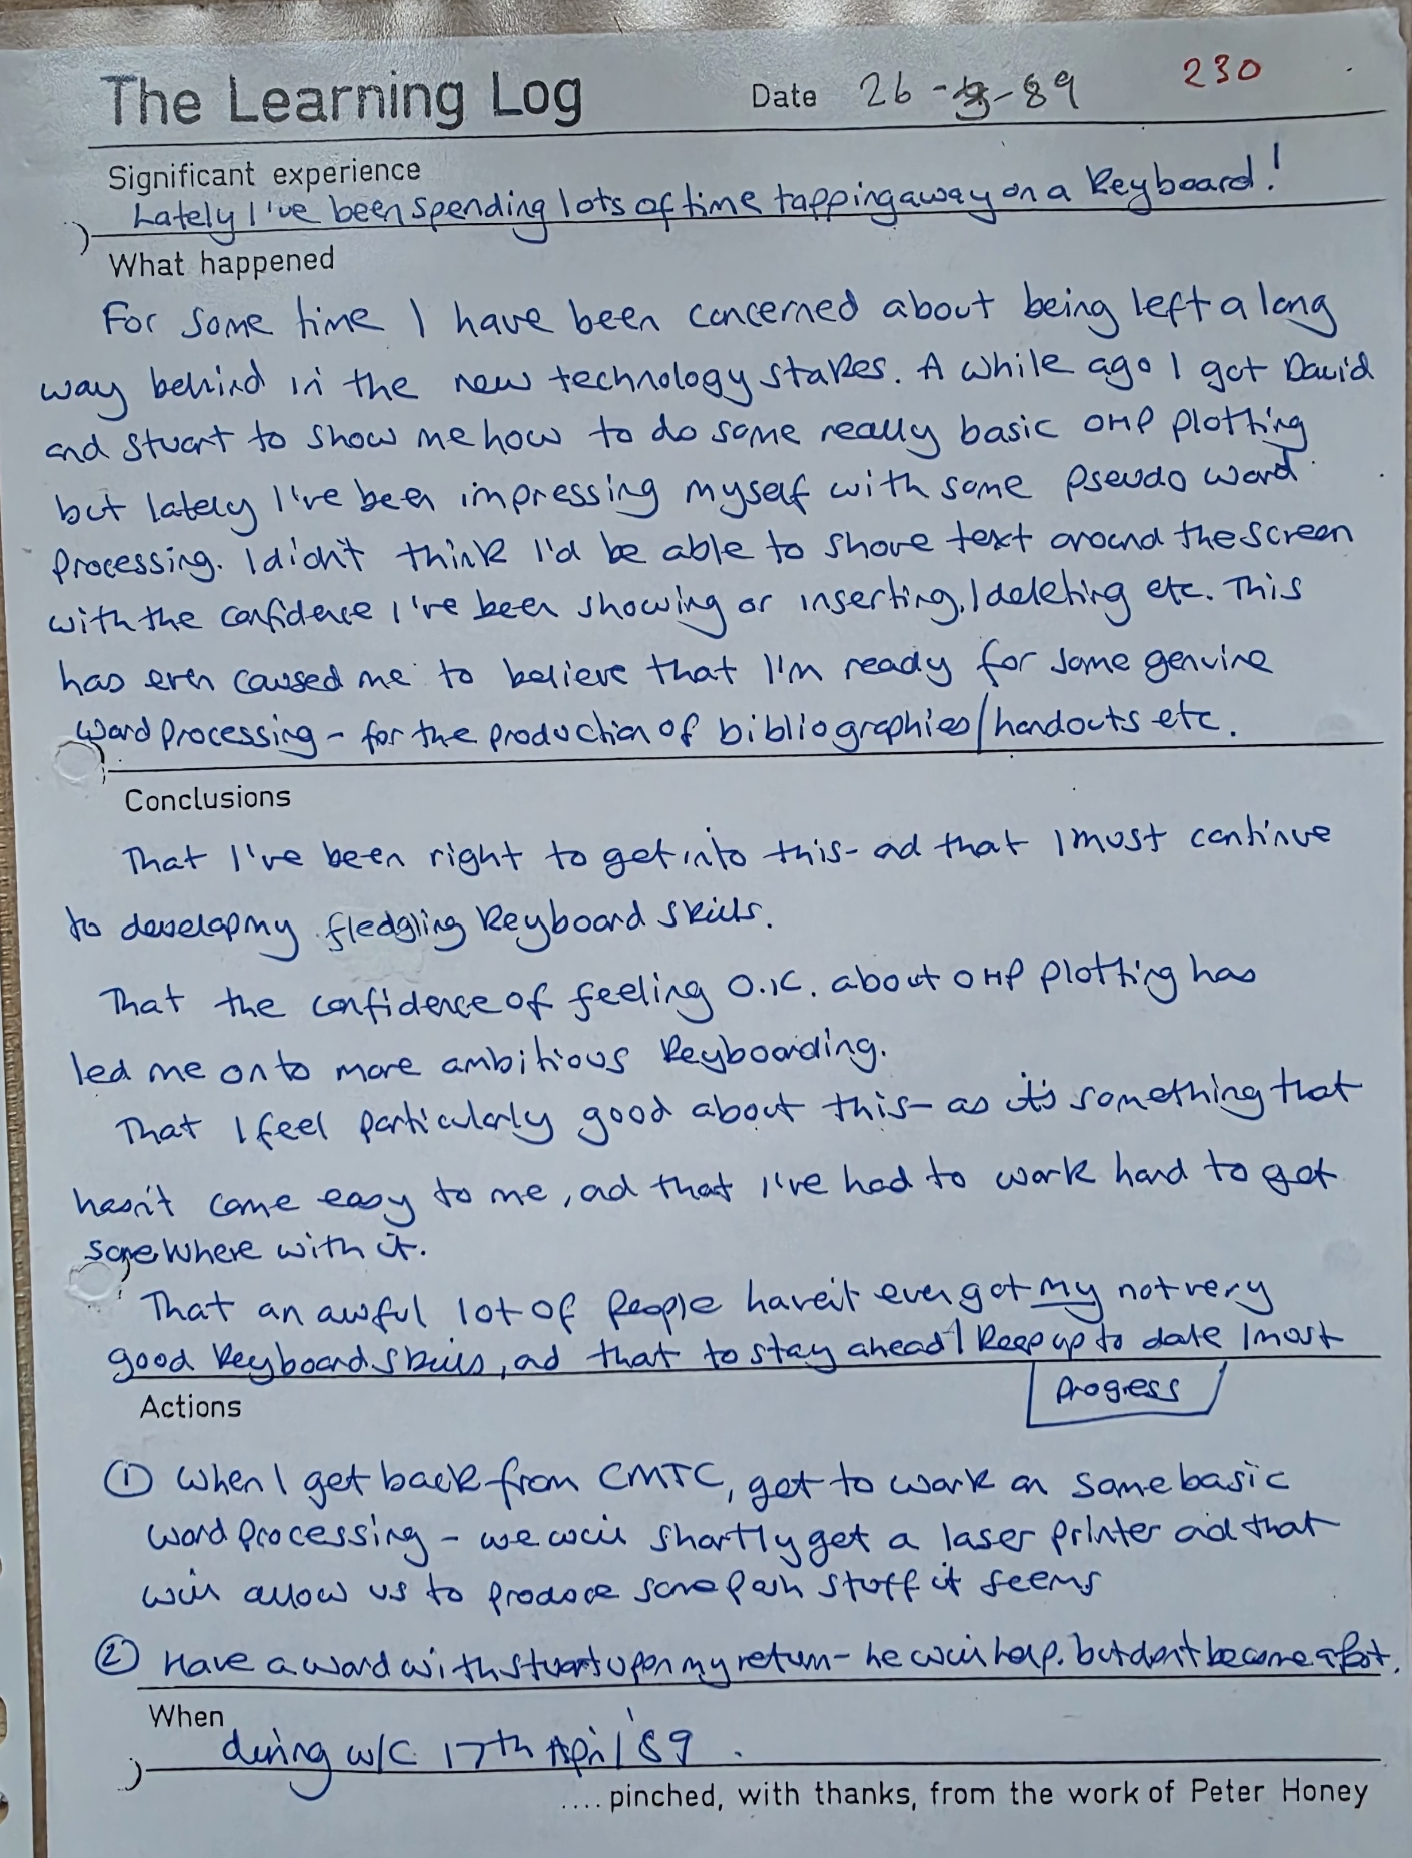 The Learning Log
Date 26-3-89
230
Significant experience
Lately I've been spending lots of time tapping away on a keyboard!
What happened
For some time I have been concerned about being left a long
way behind in the new technology stakes. A while ago I got David
and Stuart to show me how to do some really basic OHP plotting
but lately I've been impressing myself with some pseudo word
processing. I didn't think I'd be able to shove text around the screen
with the confidence I've been showing or inserting/deleting etc. This
has even caused me to believe that I'm ready for some genuine
word processing - for the production of bibliographies/handouts etc.
Conclusions
That I've been right to get into this - ad that I must continue
to develop my fledgling keyboard skills.
That the confidence of feeling O.K. about OHP plotting has
led me onto more ambitious keyboarding.
That I feel particularly good about this - as it's something that
hasn't come easy to me, ad that I've had to work hard to get
somewhere with it.
That an awful lot of people haven't even got my not very
good keyboard skills, ad that to stay ahead/keep up to date I must
progress
Actions
① When I get back from CMTC, get to work on some basic
word processing - we will shortly get a laser printer ad that
will allow us to produce some posh stuff it seems
② Have a word with Stuart upon my return - he will help. but don't become a
When
during w/c 17th April '89.
.... pinched, with thanks, from the work of Peter Honey